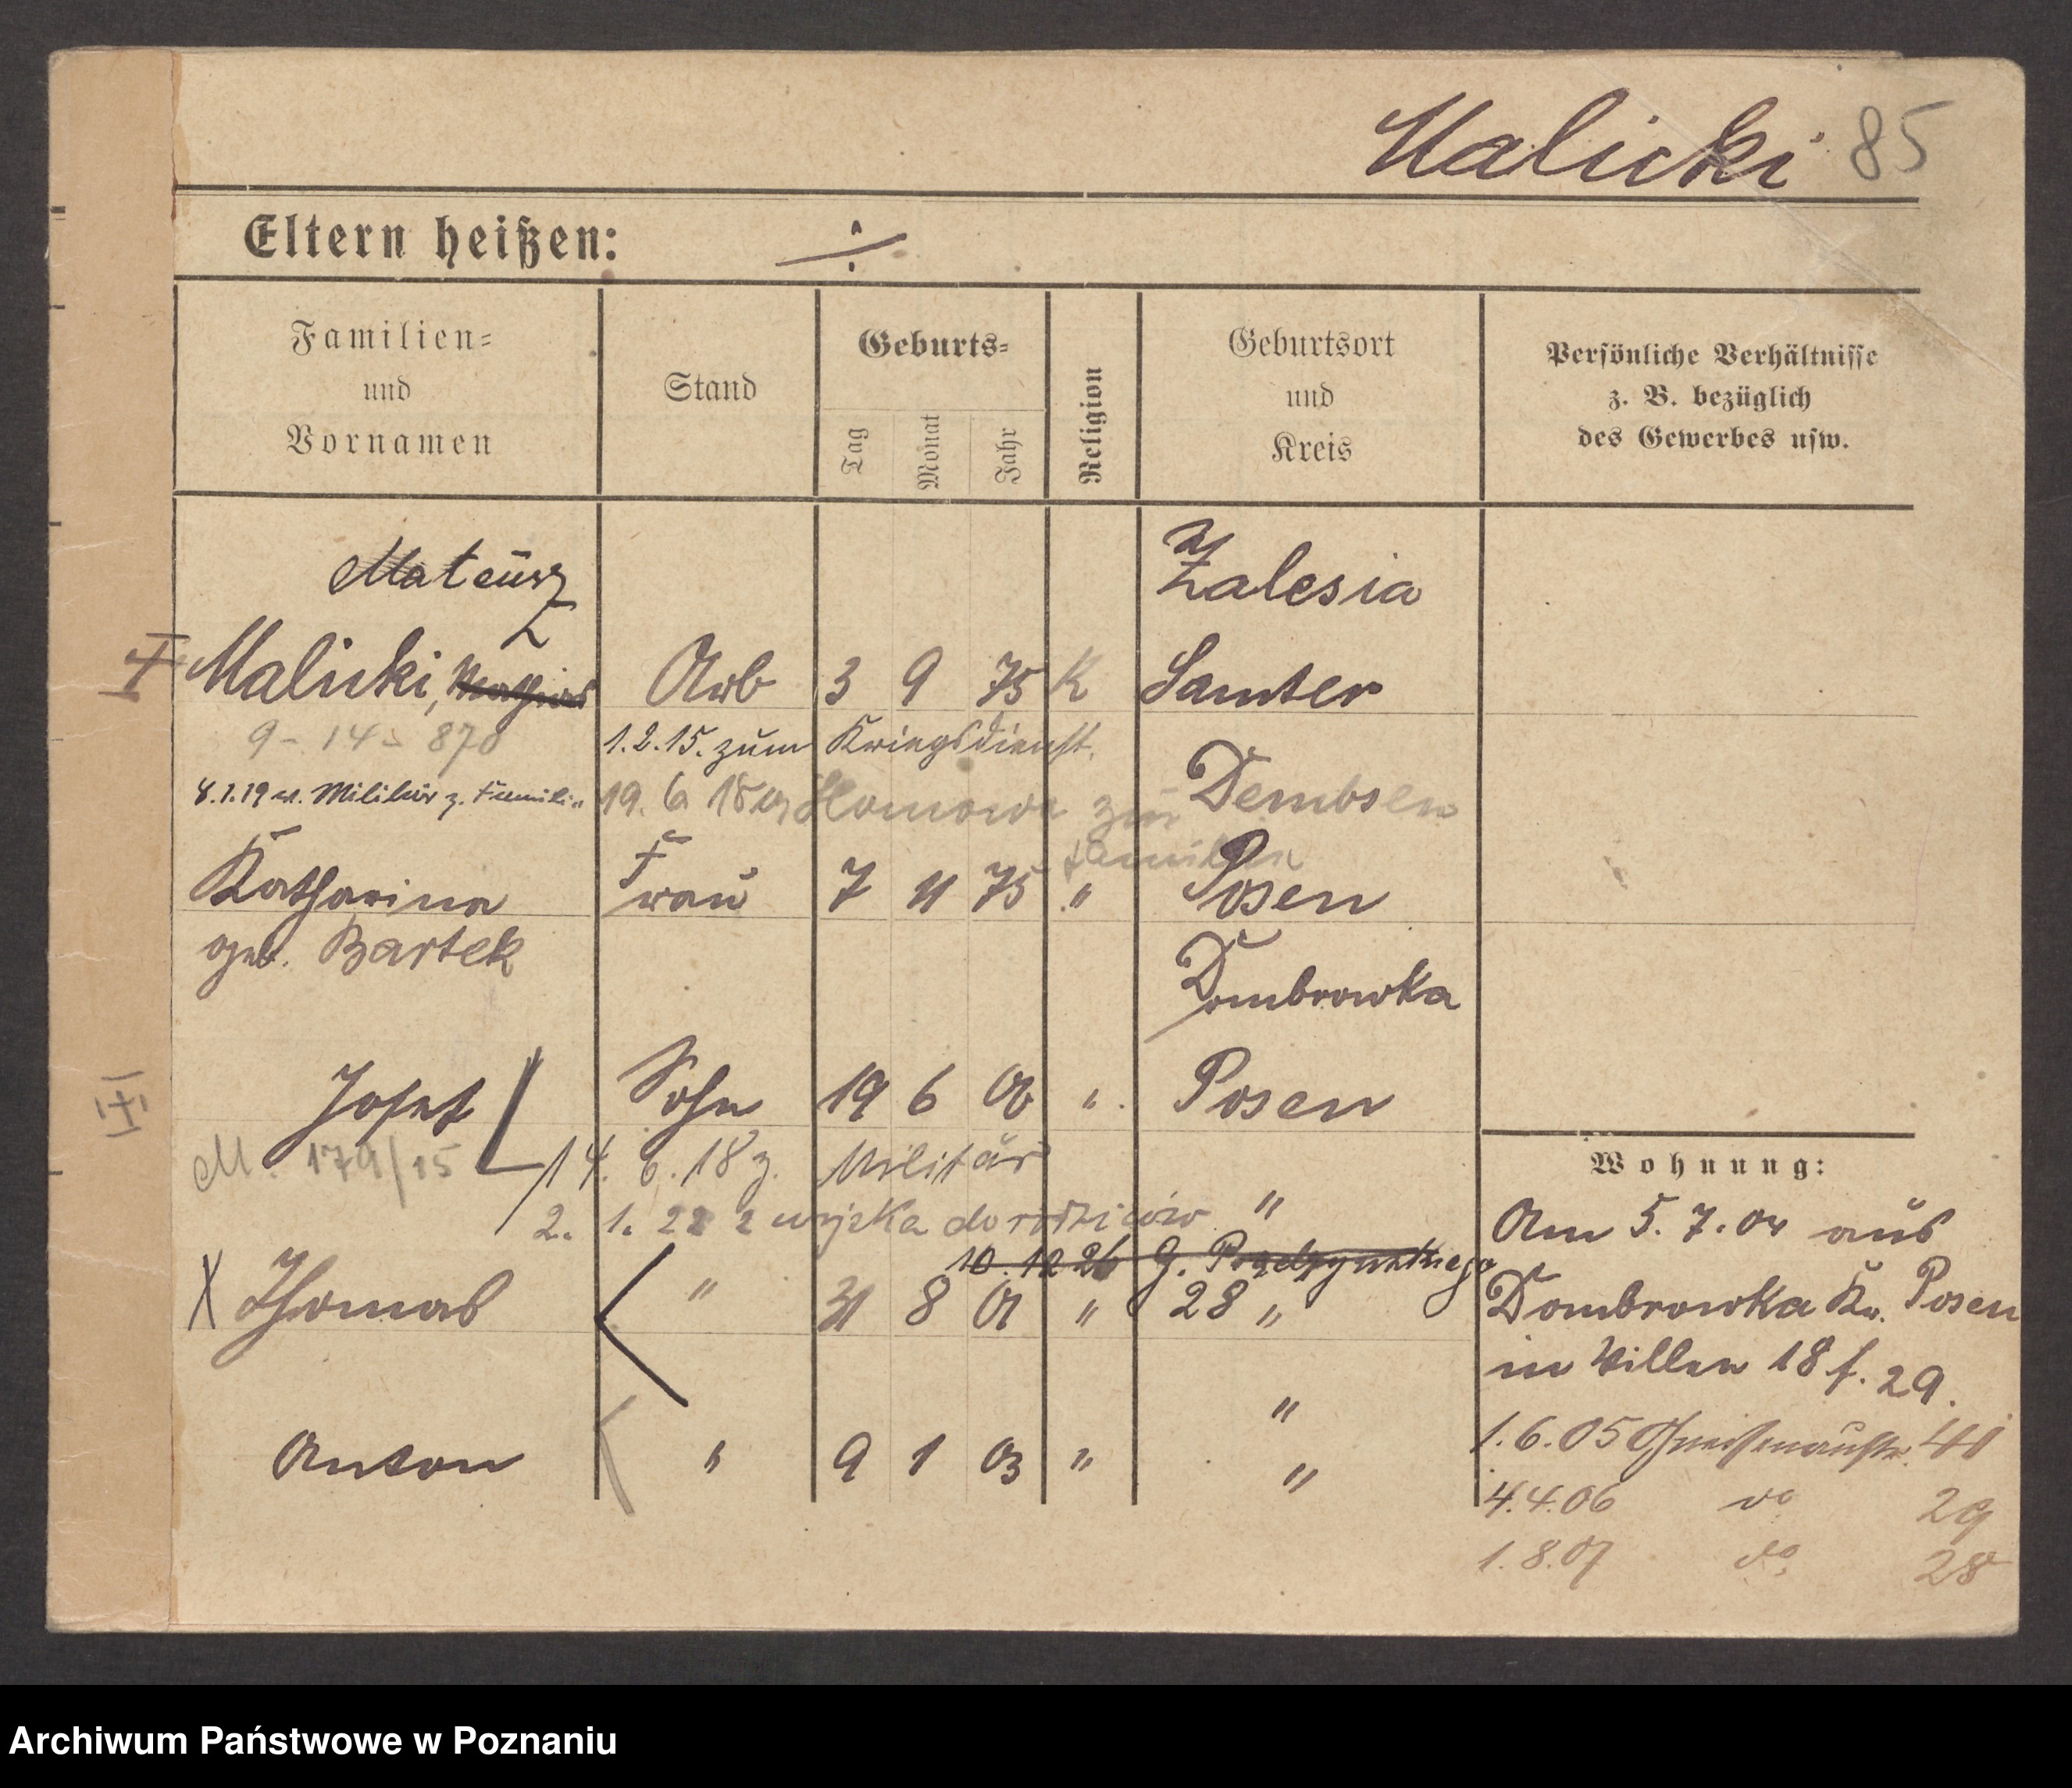 Malicki 85
Eltern heißen: ÷
Familien=
und
Vornamen
Stand
Geburts=
Tag Monat Jahr
Religion
Geburtsort
und
Kreis
Persönliche Verhältnisse
z. B. bezüglich
des Gewerbes usw.
Mateusz Zalesia
Malicki, Arb 3 9 75 K Samter
9 - 14 - 870 1.2.15. zum Kriegsdienst.
8.1.19 v. Militär z. Familie 19. 6. 18 zur Dembsen
Familie
Katharina Frau 7 11 75 " Posen
geb. Bartek Dombrowka
Josef Sohn 19 6 00 " Posen
M. 179/15 14. 6. 18 z. Militär
2. 1. 22 z wojska do rodziców "
10.12 26 G.
X Thomas " 31 8 01 " 28 "
"
Anton " 9 1 03 " "
Wohnung:
Am 5.7.04 aus
Dombrowka Kr. Posen
in Willen 18 f. 29.
1.6.05 Gneisenaustr. 41
4.4.06 do 29
1.8.07 do 28
Archiwum Państwowe w Poznaniu